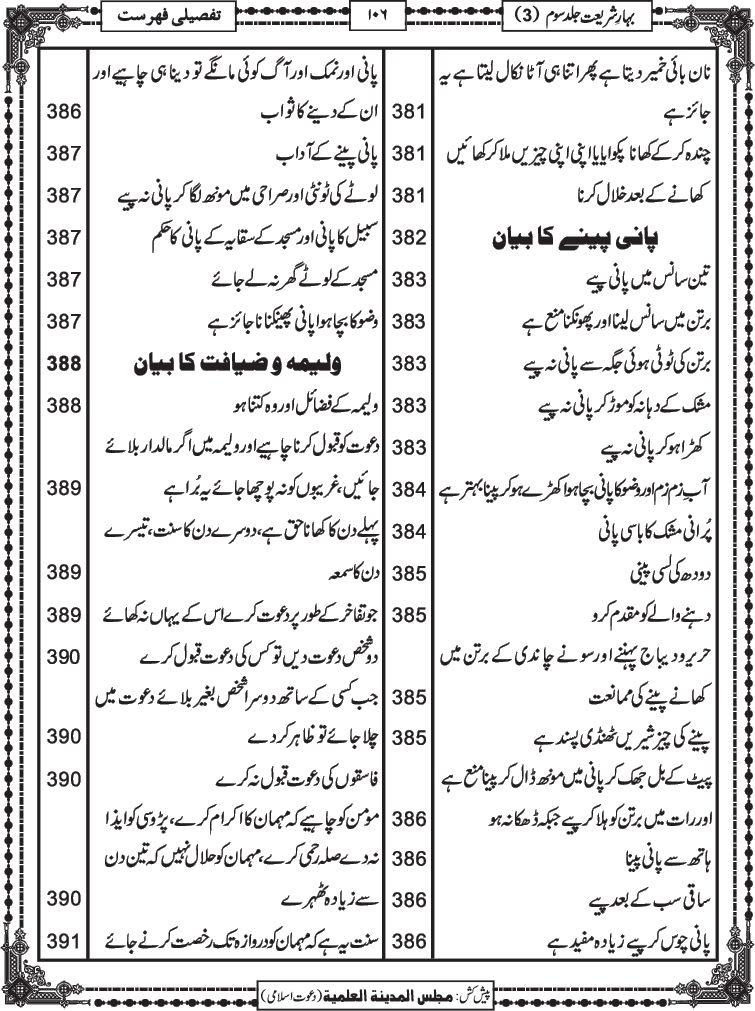 بہارِ شریعت جلد سوم (3)
۱۰۶
تفصیلی فہرست
نان بائی خمیر دیتا ہے پھر اتنا ہی آٹا نکال لیتا ہے یہ
جائز ہے 381
چندہ کرکے کھانا پکوایا یا اپنی اپنی چیزیں ملا کر کھائیں 381
کھانے کے بعد خلال کرنا 381
پانی پینے کا بیان 382
تین سانس میں پانی پیے 383
برتن میں سانس لینا اور پھونکنا منع ہے 383
برتن کی ٹوٹی ہوئی جگہ سے پانی نہ پیے 383
مشک کے دہانہ کو موڑ کر پانی نہ پیے 383
کھڑا ہو کر پانی نہ پیے 383
آب زم زم اور وضو کا پانی بچا ہوا کھڑے ہو کر پینا بہتر ہے 384
پُرانی مشک کا باسی پانی 384
دودھ کی لسی پینی 385
دہنے والے کو مقدم کرو 385
حریر و دیباج پہننے اور سونے چاندی کے برتن میں
کھانے پینے کی ممانعت 385
پینے کی چیز شیریں ٹھنڈی پسند ہے 385
پیٹ کے بل جھک کر پانی میں مونھ ڈال کر پینا منع ہے
اور رات میں برتن کو ہلا کر پیے جبکہ ڈھکا نہ ہو 386
ہاتھ سے پانی پینا 386
ساقی سب کے بعد پیے 386
پانی چوس کر پیے زیادہ مفید ہے 386
پانی اور نمک اور آگ کوئی مانگے تو دینا ہی چاہیے اور
ان کے دینے کا ثواب 386
پانی پینے کے آداب 387
لوٹے کی ٹونٹی اور صراحی میں مونھ لگا کر پانی نہ پیے 387
سبیل کا پانی اور مسجد کے سقایہ کے پانی کا حکم 387
مسجد کے لوٹے گھر نہ لے جائے 387
وضو کا بچا ہوا پانی پھینکنا ناجائز ہے 387
ولیمہ و ضیافت کا بیان 388
ولیمہ کے فضائل اور وہ کتنا ہو 388
دعوت کو قبول کرنا چاہیے اور ولیمہ میں اگر مالدار بلائے
جائیں، غریبوں کو نہ پوچھا جائے یہ بُرا ہے 389
پہلے دن کا کھانا حق ہے، دوسرے دن کا سنت، تیسرے
دن کا سمعہ 389
جو تفاخر کے طور پر دعوت کرے اس کے یہاں نہ کھائے 389
دو شخص دعوت دیں تو کس کی دعوت قبول کرے 390
جب کسی کے ساتھ دوسرا شخص بغیر بلائے دعوت میں
چلا جائے تو ظاہر کر دے 390
فاسقوں کی دعوت قبول نہ کرے 390
مومن کو چاہیے کہ مہمان کا اکرام کرے، پڑوسی کو ایذا
نہ دے صلہ رحمی کرے، مہمان کو حلال نہیں کہ تین دن
سے زیادہ ٹھہرے 390
سنت یہ ہے کہ مہمان کو دروازہ تک رخصت کرنے جائے 391
پیش کش: مجلس المدینۃ العلمیۃ (دعوت اسلامی)